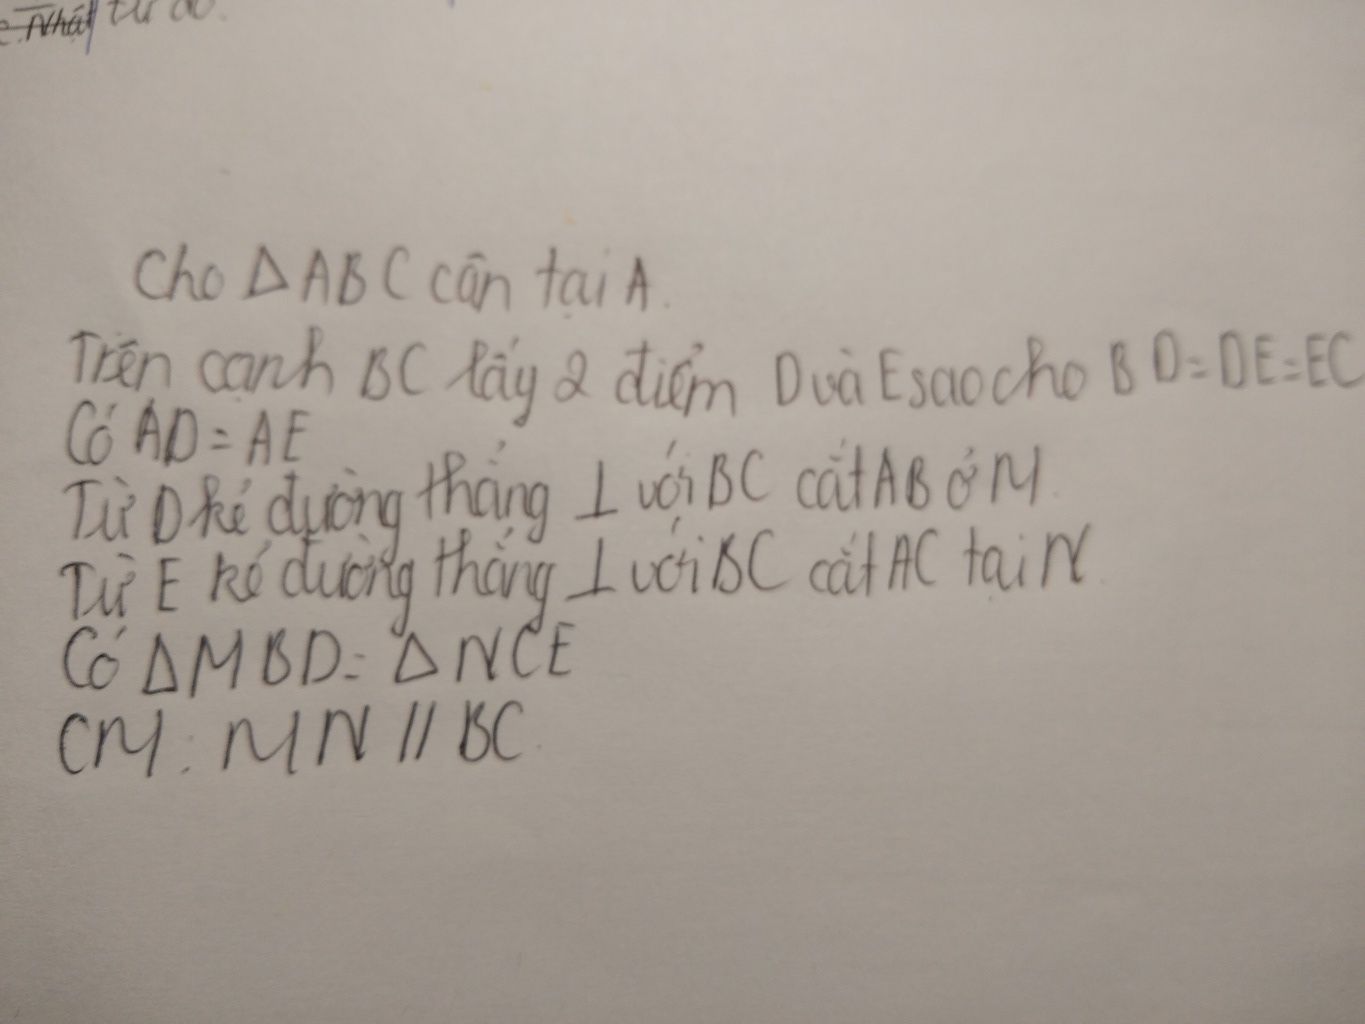 Nhật từ do.
Cho ΔABC cân tại A.
Trên cạnh BC lấy 2 điểm D và E sao cho BD=DE=EC
Có AD=AE
Từ D kẻ đường thẳng ⊥ với BC cắt AB ở M.
Từ E kẻ đường thẳng ⊥ với BC cắt AC tại N.
Có ΔMBD=ΔNCE
CM: MN // BC.